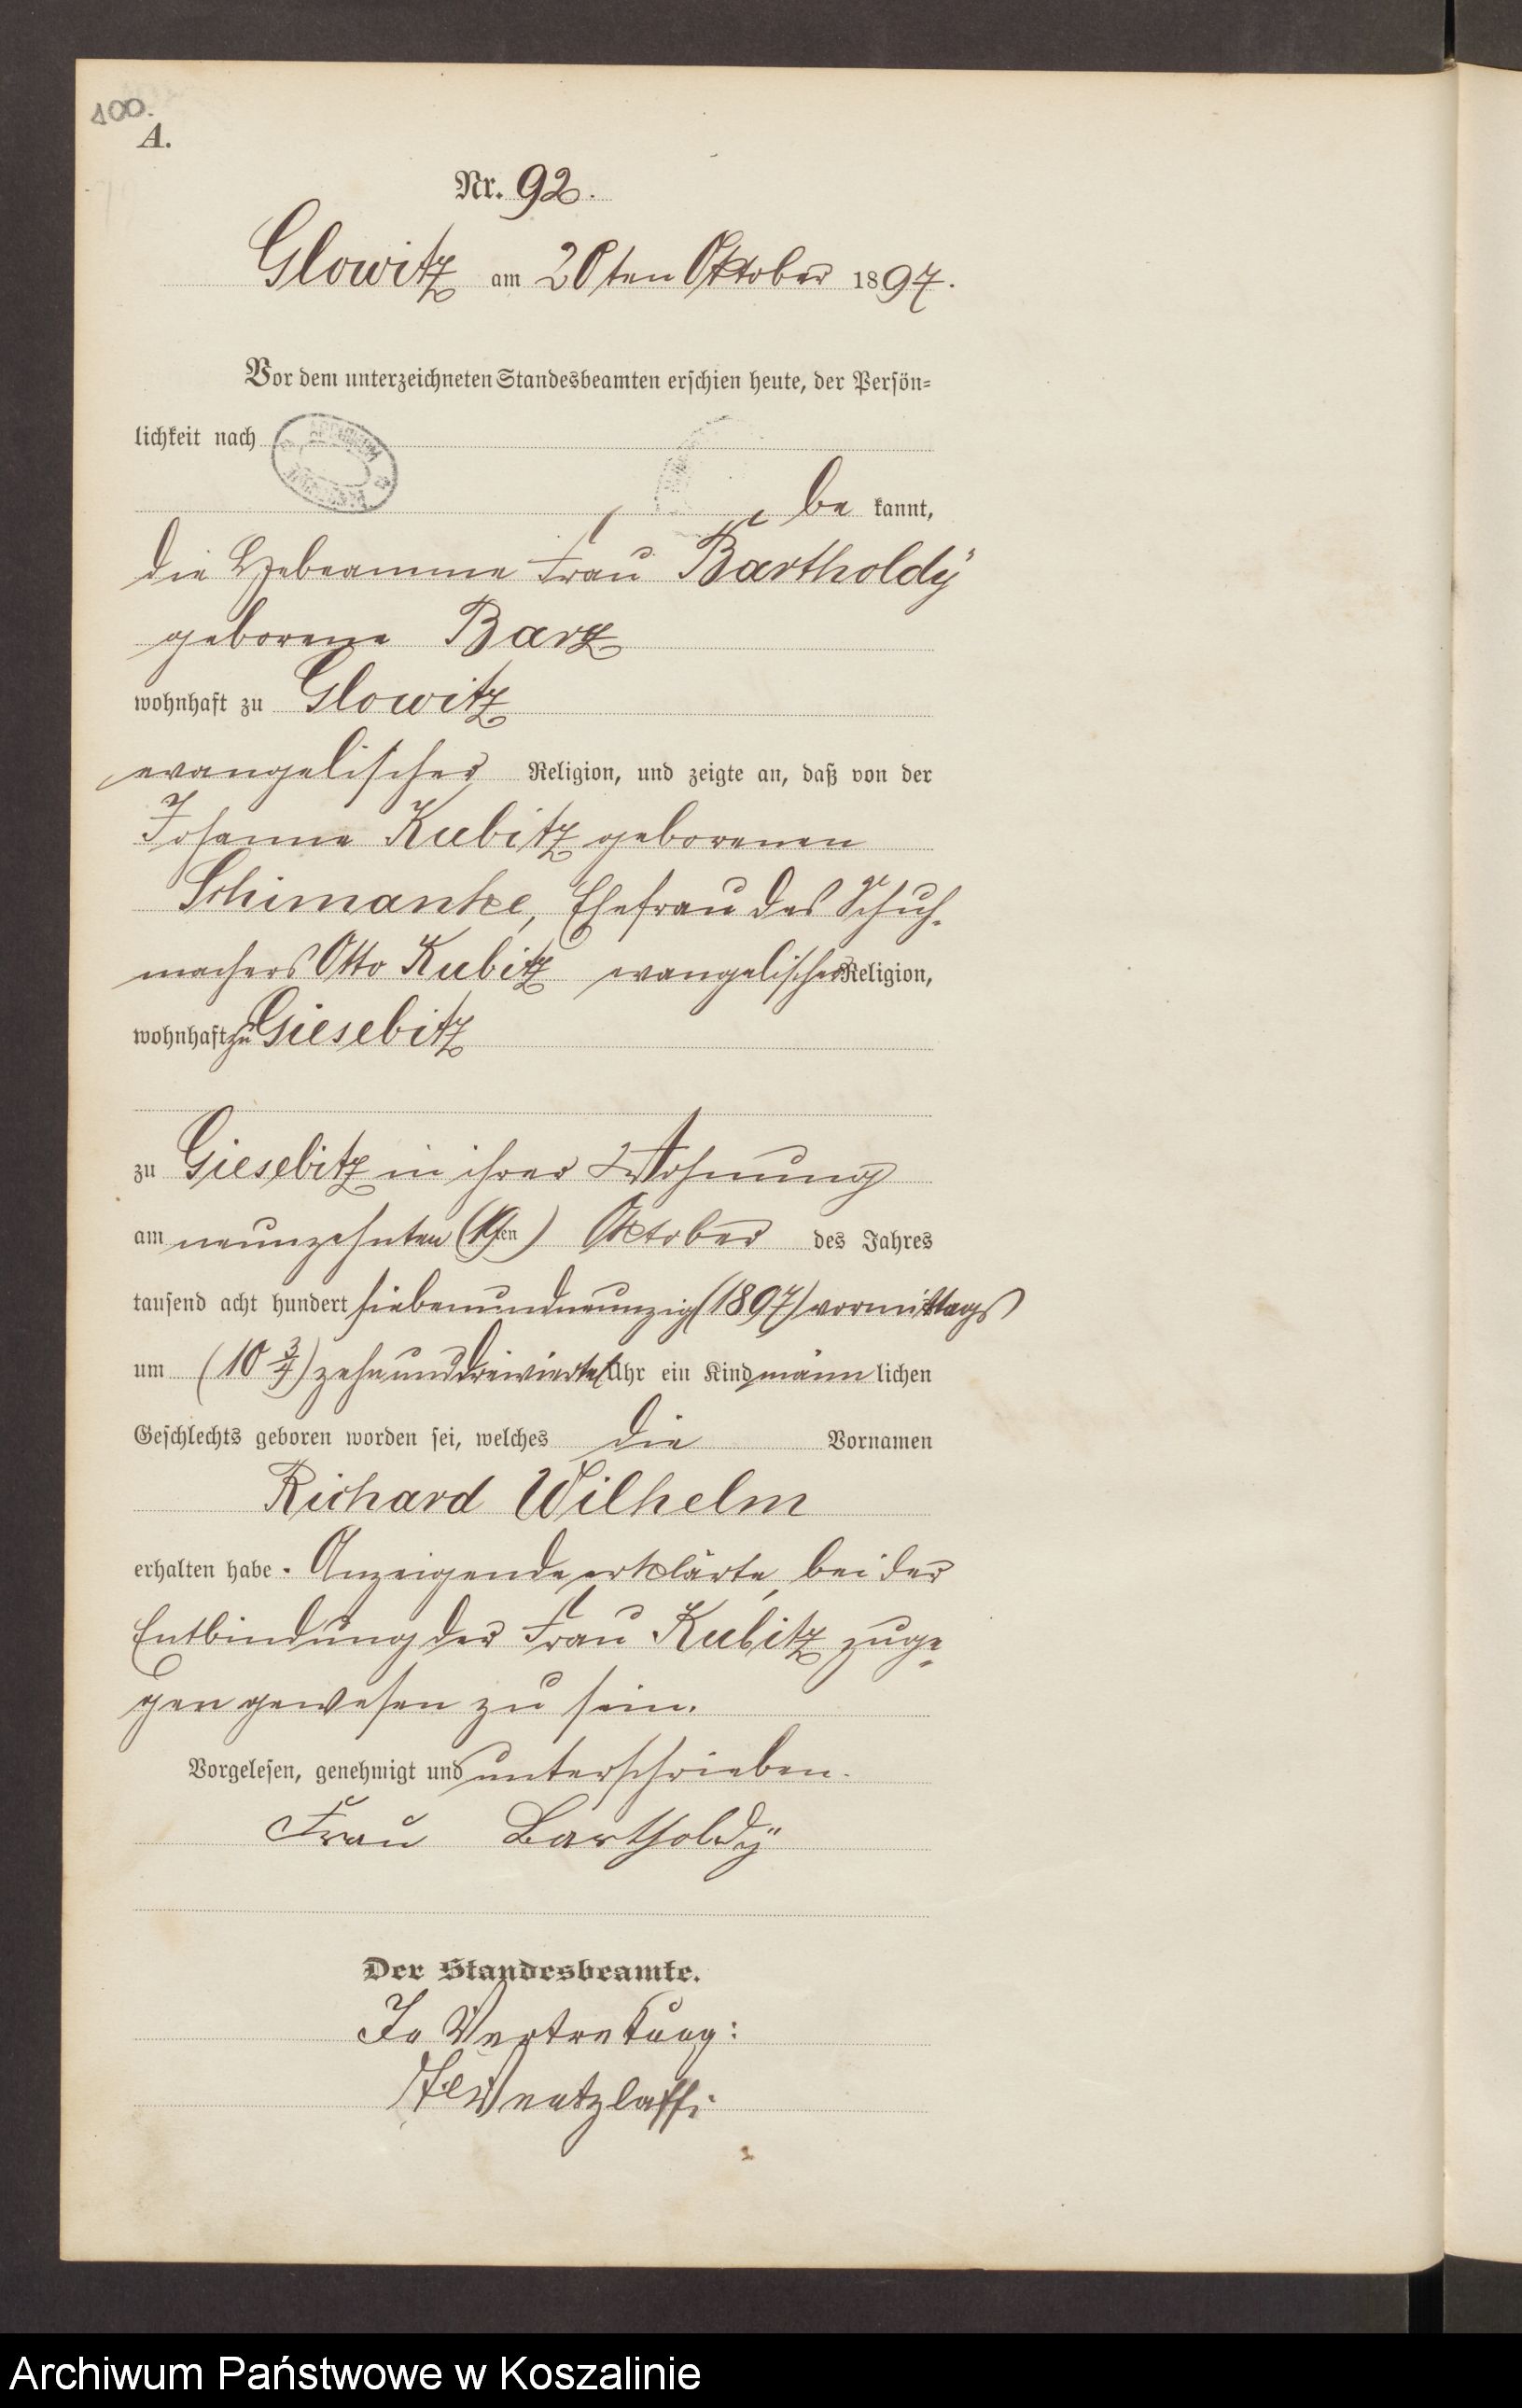 100.
A.
Nr. 92.
Glowitz am 20ten Oktober 1897.
Vor dem unterzeichneten Standesbeamten erschien heute, der Persön=
lichkeit nach
be kannt,
die Hebeamme Frau Bartholdÿ
geborene Barz
wohnhaft zu Glowitz
evangelischer Religion, und zeigte an, daß von der
Johanne Kubitz geborenen
Schimanke, Ehefrau des Schuh-
machers Otto Kubitz evangelischer Religion,
wohnhaft zu Giesebitz
zu Giesebitz in ihrer Wohnung
am neunzehnten (19ten) Oktober des Jahres
tausend acht hundert siebenundneunzig (1897) vormittags
um (10 3/4) zehnunddreiviertel Uhr ein Kind männlichen
Geschlechts geboren worden sei, welches die Vornamen
Richard Wilhelm
erhalten habe. Anzeigende erklärte, bei der
Entbindung der Frau Kubitz zuge=
gen gewesen zu sein.
Vorgelesen, genehmigt und unterschrieben.
Frau Bartholdÿ
Der Standesbeamte.
In Vertretung:
Wentzlaff.
Archiwum Państwowe w Koszalinie